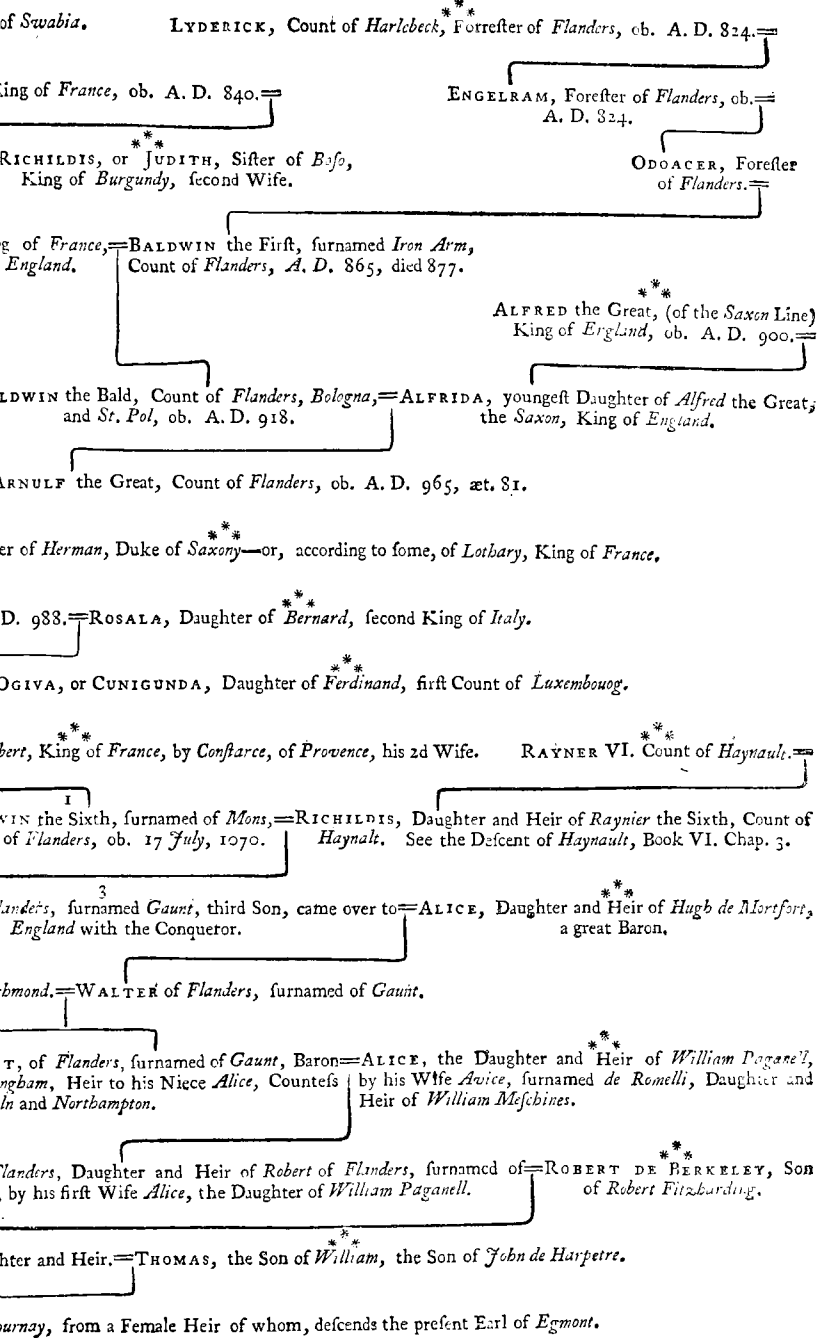 of Swabia. LYDERICK, Count of Harlebeck, Forreſter of Flanders, ob. A. D. 824.
King of France, ob. A. D. 840.
ENGELRAM, Foreſter of Flanders, ob.
A. D. 824.
RICHILDIS, or JUDITH, Siſter of Boſo,
King of Burgundy, ſecond Wife.
ODOACER, Foreſter
of Flanders.
g of France,=BALDWIN the Firſt, ſurnamed Iron Arm,
England. Count of Flanders, A. D. 865, died 877.
ALFRED the Great, (of the Saxon Line)
King of England, ob. A. D. 900.
LDWIN the Bald, Count of Flanders, Bologna,=ALFRIDA, youngeſt Daughter of Alfred the Great,
and St. Pol, ob. A. D. 918. the Saxon, King of England.
ARNULF the Great, Count of Flanders, ob. A. D. 965, æt. 81.
er of Herman, Duke of Saxony—or, according to ſome, of Lothary, King of France.
D. 988.=ROSALA, Daughter of Bernard, ſecond King of Italy.
OGIVA, or CUNIGUNDA, Daughter of Ferdinand, firſt Count of Luxembouog.
bert, King of France, by Conſtarce, of Provence, his 2d Wife. RAYNER VI. Count of Haynault.
1
VIN the Sixth, ſurnamed of Mons,=RICHILDIS, Daughter and Heir of Raynier the Sixth, Count of
of Flanders, ob. 17 July, 1070. Haynalt. See the Deſcent of Haynault, Book VI. Chap. 3.
3
landers, ſurnamed Gaunt, third Son, came over to=ALICE, Daughter and Heir of Hugh de Mortfort,
England with the Conqueror. a great Baron.
chmond.=WALTER of Flanders, ſurnamed of Gaunt.
T, of Flanders, ſurnamed of Gaunt, Baron=ALICE, the Daughter and Heir of William Paganell,
ngham, Heir to his Niece Alice, Counteſs by his Wife Avice, ſurnamed de Romelli, Daughter and
ln and Northampton. Heir of William Meſchines.
Flanders, Daughter and Heir of Robert of Flanders, ſurnamed of=ROBERT DE BERKELEY, Son
, by his firſt Wife Alice, the Daughter of William Paganell. of Robert Fitzharding.
hter and Heir.=THOMAS, the Son of William, the Son of John de Harpetre.
ournay, from a Female Heir of whom, deſcends the preſent Earl of Egmont.